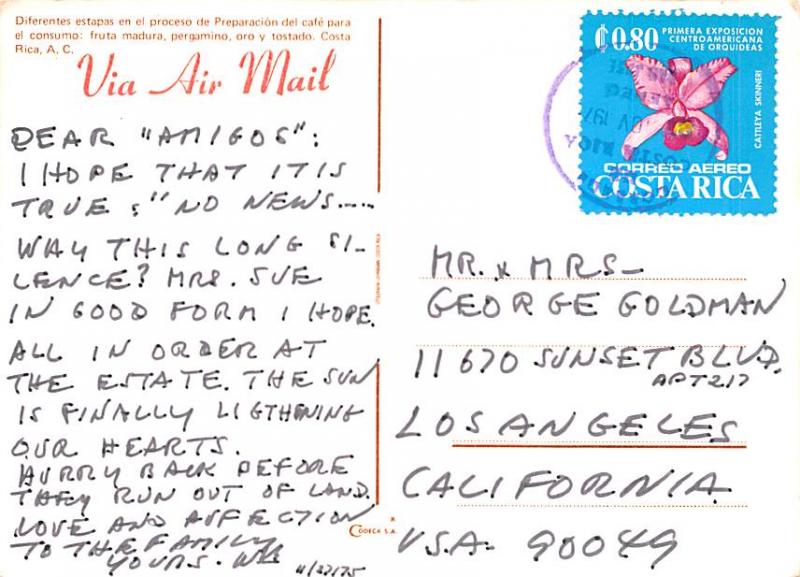 Diferentes estapas en el proceso de Preparación del café para
el consumo: fruta madura, pergamino, oro y tostado. Costa
Rica, A, C.
Via Air Mail
DEAR "AMIGOS":
I HOPE THAT IT IS
TRUE: "NO NEWS.....
WAY THIS LONG SI-
LENCE? MRS. SUE
IN GOOD FORM I HOPE.
ALL IN ORDER AT
THE ESTATE. THE SUN
IS FINALLY LIGTHENING
OUR HEARTS.
HURRY BACK BEFORE
THEY RUN OUT OF LAND.
LOVE AND AFFECTION
TO THE FAMILY
YOURS.
CODECA S.A.
₡0.80
PRIMERA EXPOSICION
CENTROAMERICANA
DE ORQUIDEAS
CATTLEYA SKINNERI
CORREO AEREO
COSTA RICA
MR. & MRS-
GEORGE GOLDMAN
11670 SUNSET BLVD.
APT 217
LOS ANGELES
CALIFORNIA
U.S.A. 90049